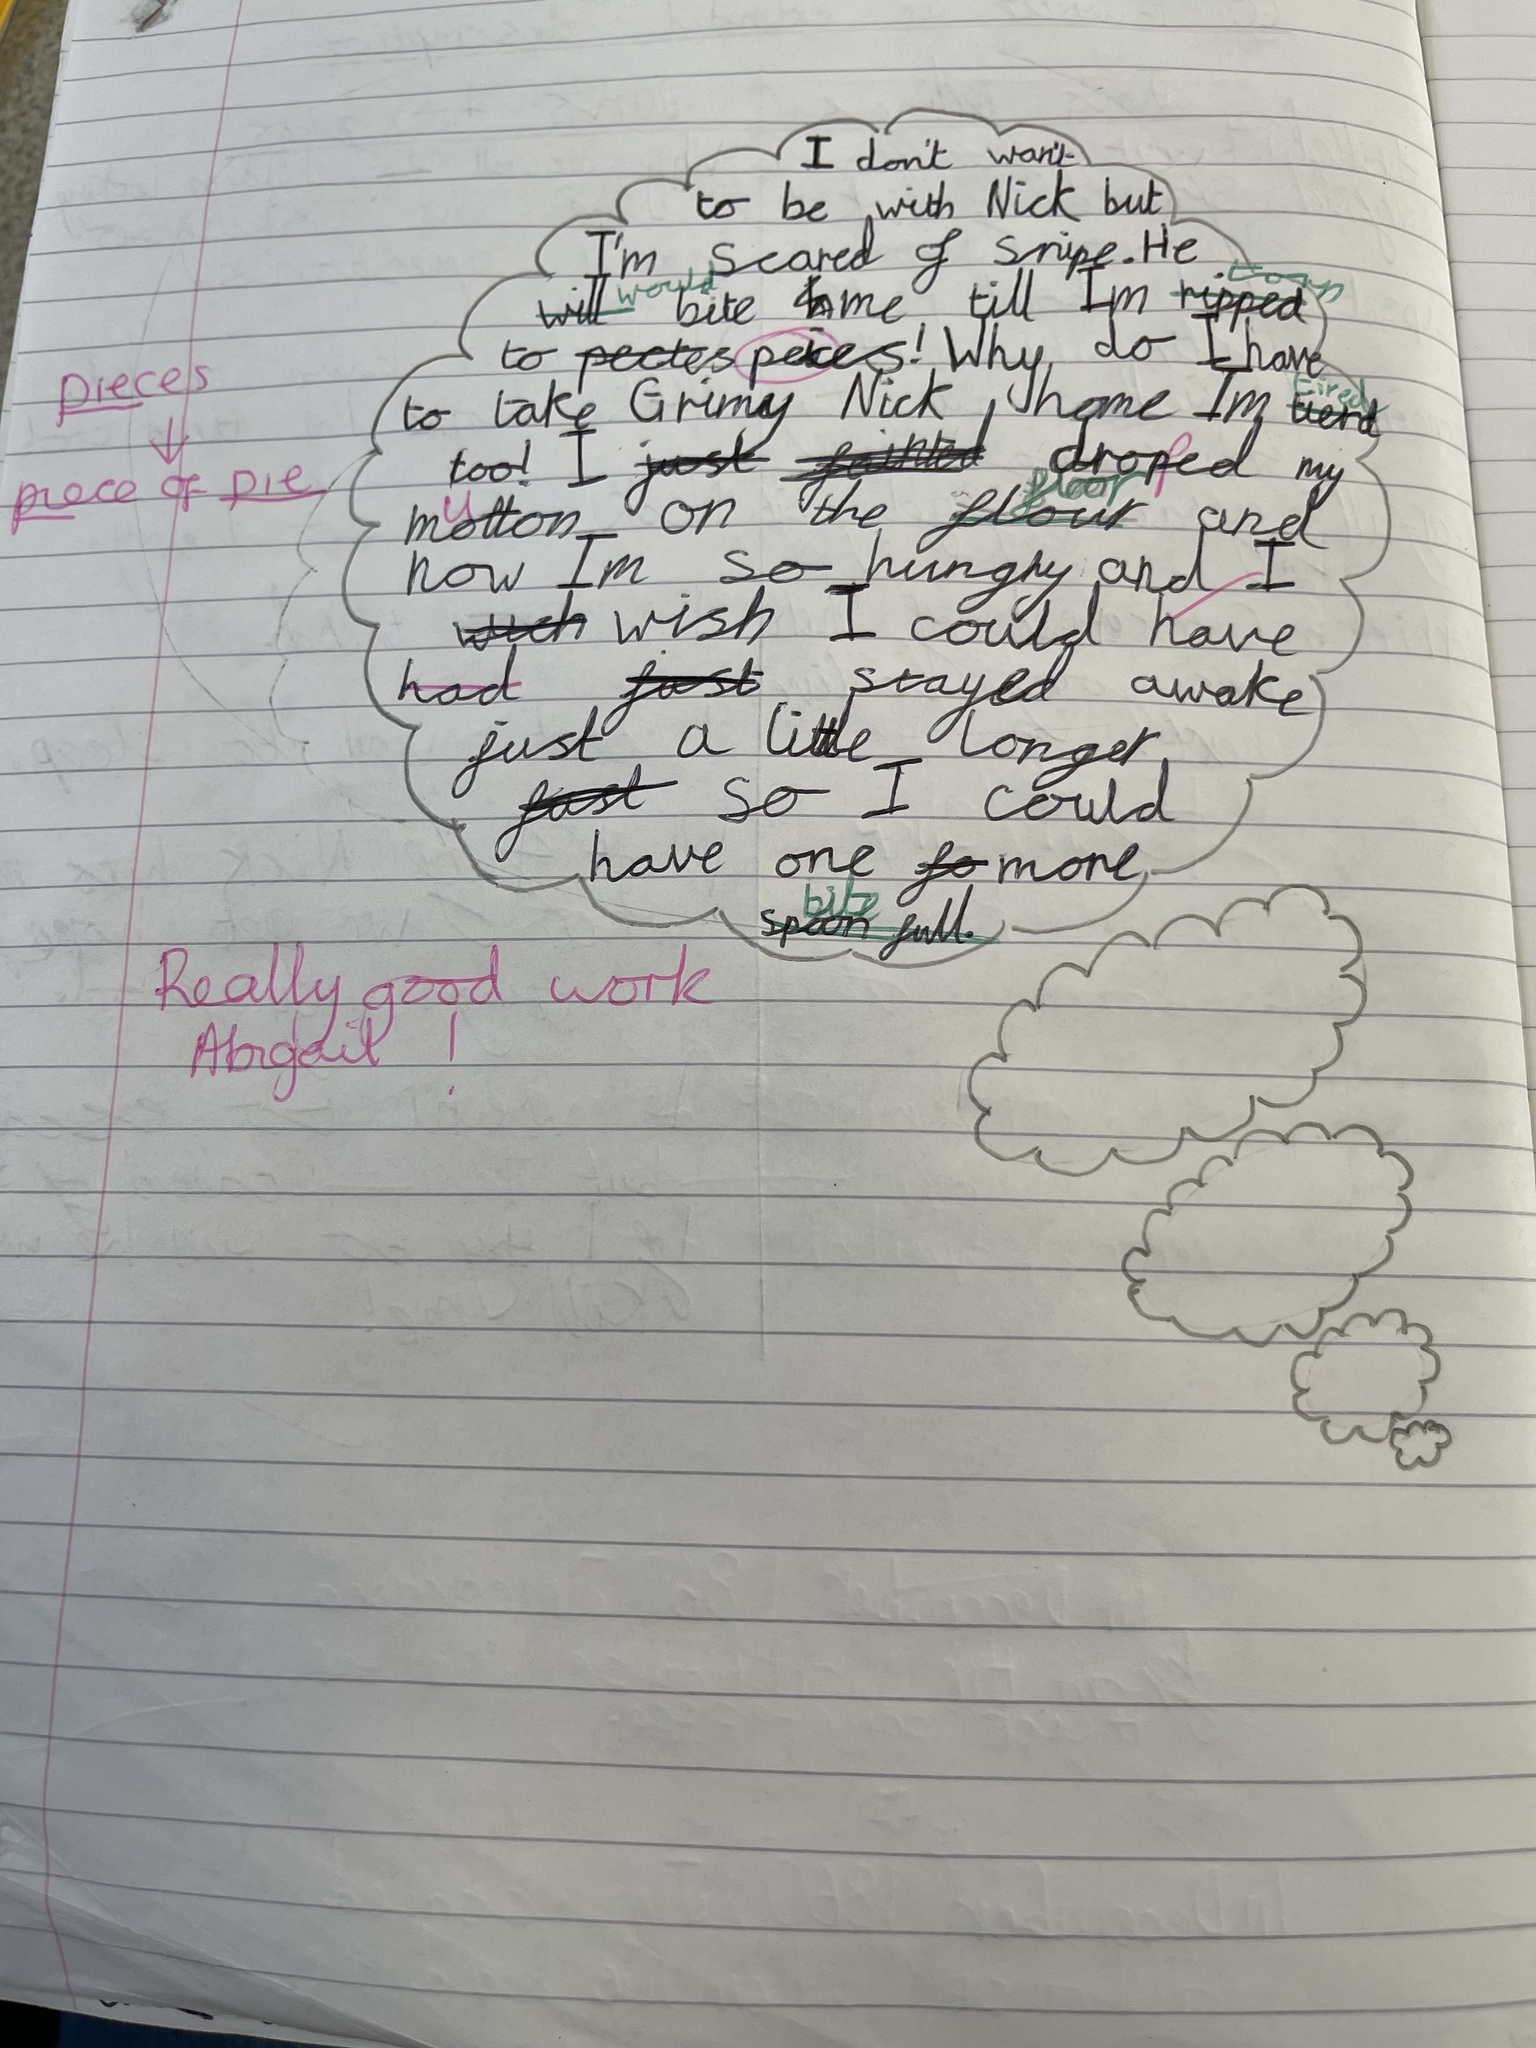 I don't want
to be with Nick but
I'm scared of snipe. He
will would bite me till Im ripped torn
to pectes peices! Why do I have
pieces
to take Grimy Nick home Im tierd tired
too! I just fainted droped my
p
piece of pie
motton on the flour floor and
u
now Im so hungry and I
wich wish I could have
had just stayed awake
just a little longer
just so I could
have one fo more
spoon full. bite
Really good work
Abigail !